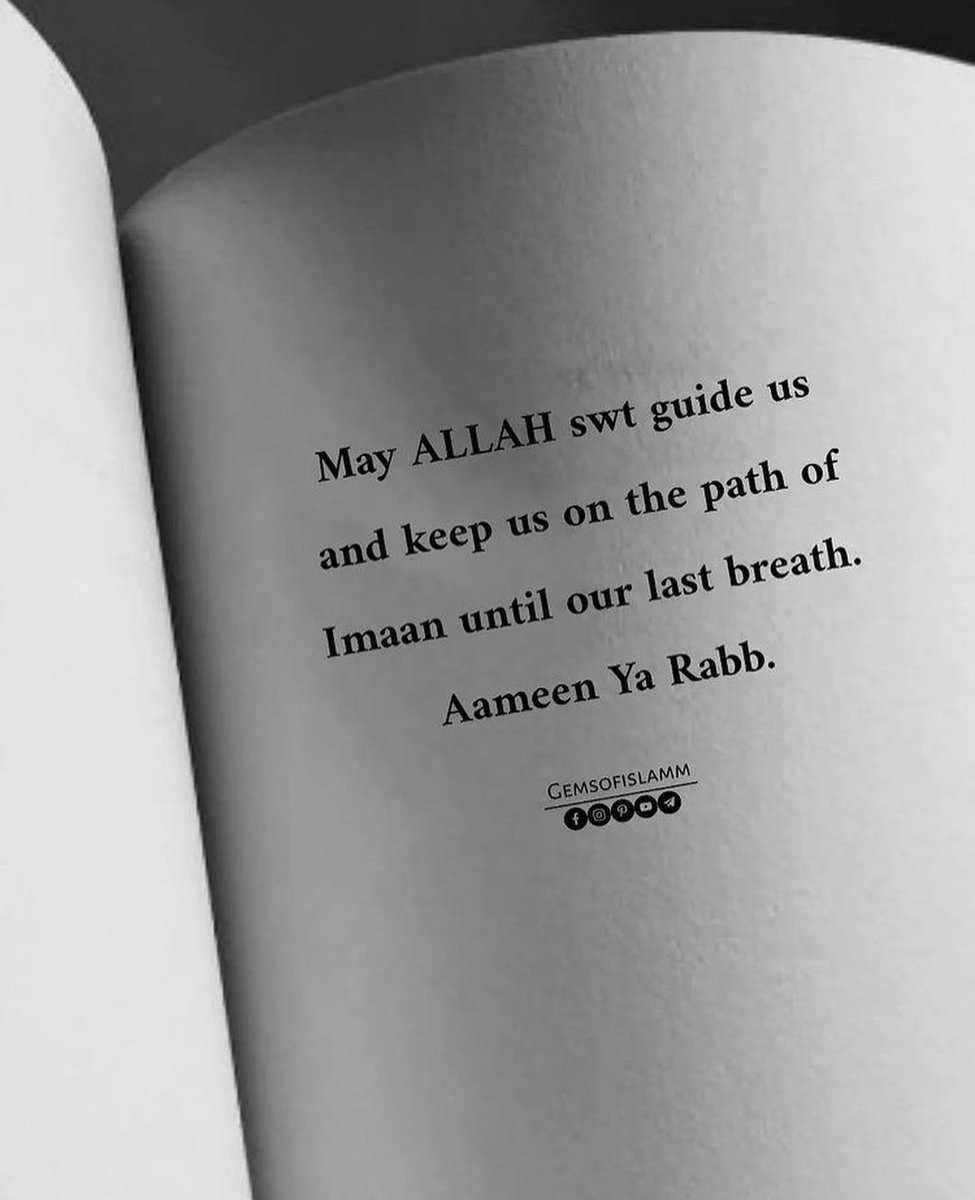 May ALLAH swt guide us
and keep us on the path of
Imaan until our last breath.
Aameen Ya Rabb.
GEMSOFISLAMM